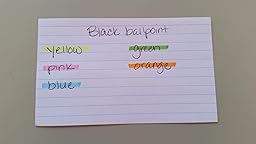 Black ballpoint
yellow
pink
blue
green
orange